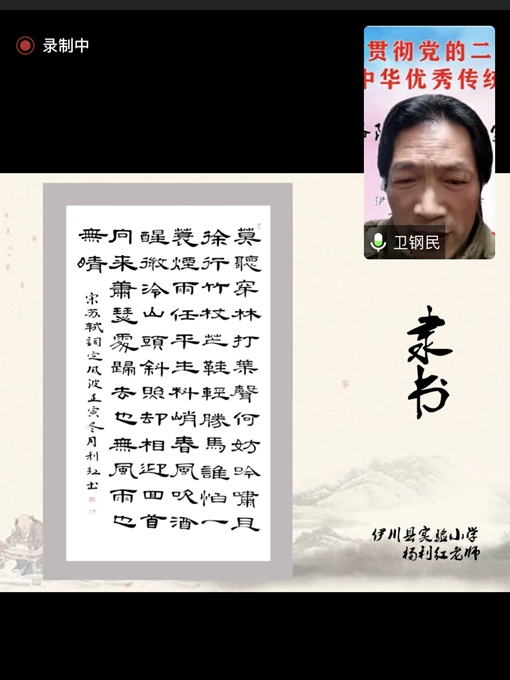 录制中
贯彻党的二
中华优秀传统
卫钢民
莫聽穿林打葉聲何妨吟嘯且
徐行竹杖芒鞋輕勝馬誰怕一
蓑煙雨任平生料峭春風吹酒
醒微冷山頭斜照却相迎回首
向来蕭瑟處歸去也無風雨也
無晴
宋苏轼詞定风波壬寅冬月利红书
隶书
伊川县实验小学
杨利红老师